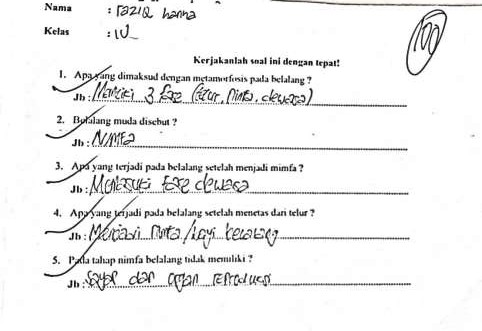 Nama : raziq hanna
Kelas : IV
100
Kerjakanlah soal ini dengan tepat!
1. Apa yang dimaksud dengan metamorfosis pada belalang ?
Jb : Memiliki 3 fase (telur, nimfa, dewasa)
2. Belalang muda disebut ?
Jb : NIMFA
3. Apa yang terjadi pada belalang setelah menjadi mimfa ?
Jb : Memasuki fase dewasa
4. Apa yang terjadi pada belalang setelah menetas dari telur ?
Jb : Menjadi nimfa / bayi belalang
5. Pada tahap nimfa belalang tidak memiliki ?
Jb : Sayap dan organ reproduksi